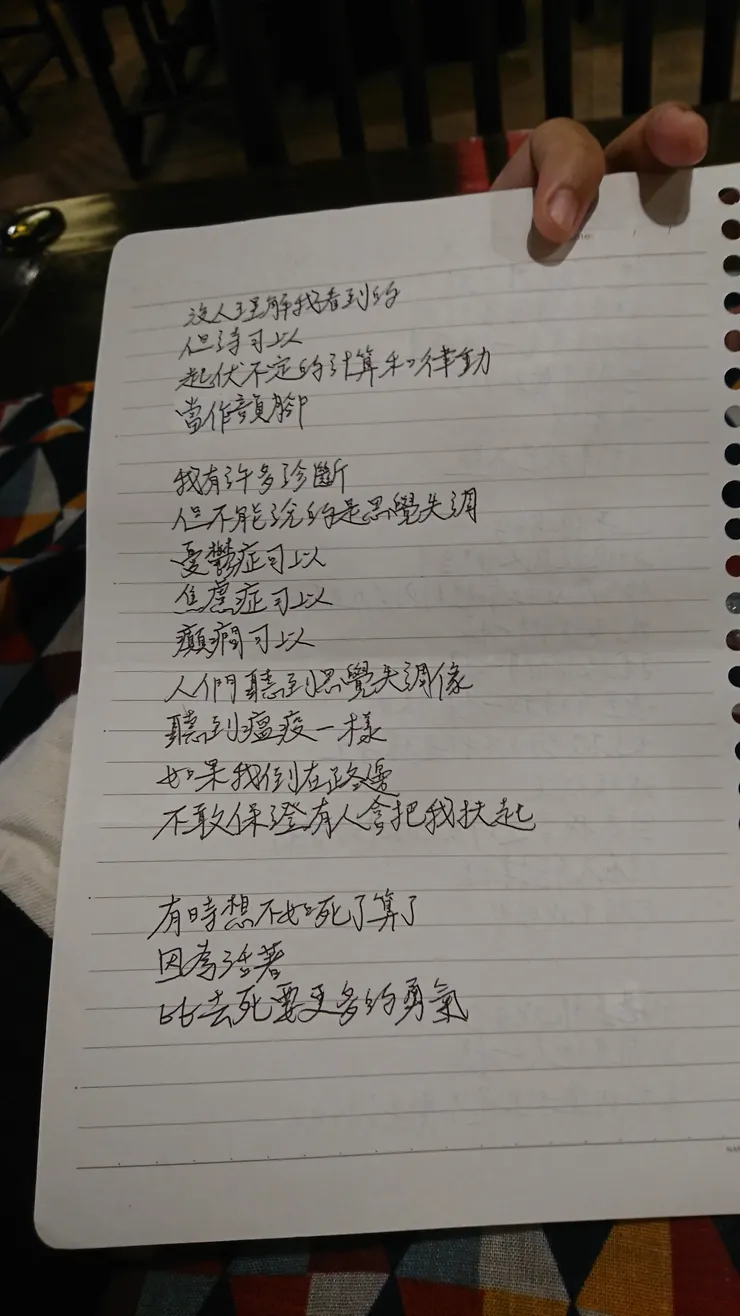 沒人理解我看到的
但詩可以
起伏不定的計算和律動
當作韻腳
我有許多診斷
但不能說的是思覺失調
憂鬱症可以
焦慮症可以
癲癇可以
人們聽到思覺失調像
聽到瘟疫一樣
如果我倒在路邊
不敢保證有人會把我扶起
有時想不如死了算了
因為活著
比去死要更多的勇氣